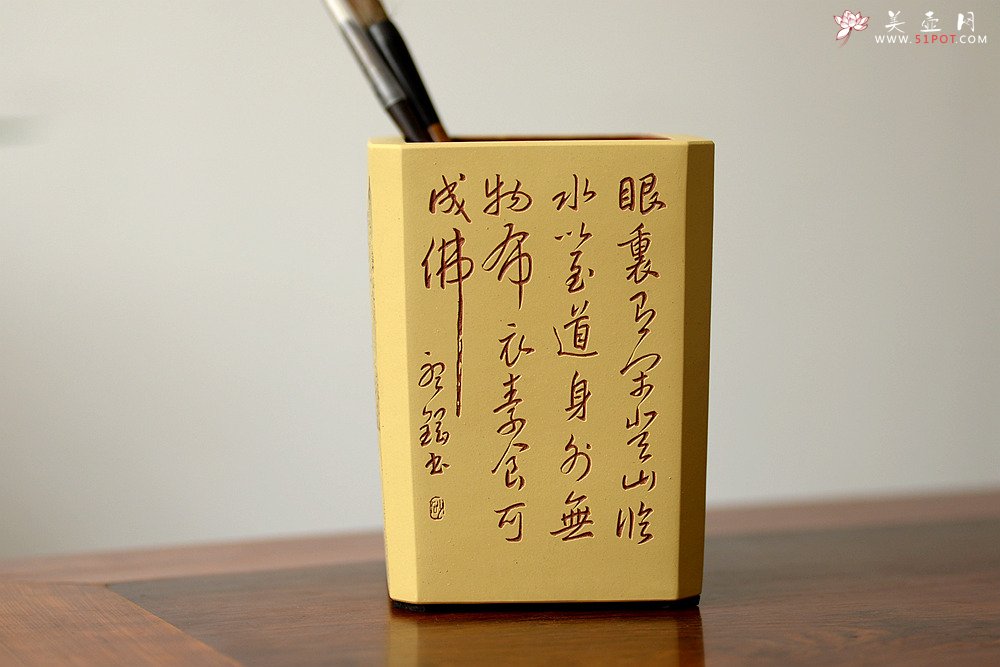 美壶网
WWW.51POT.COM
眼裏登山临
水道身外無
物布衣素食可
成佛
书